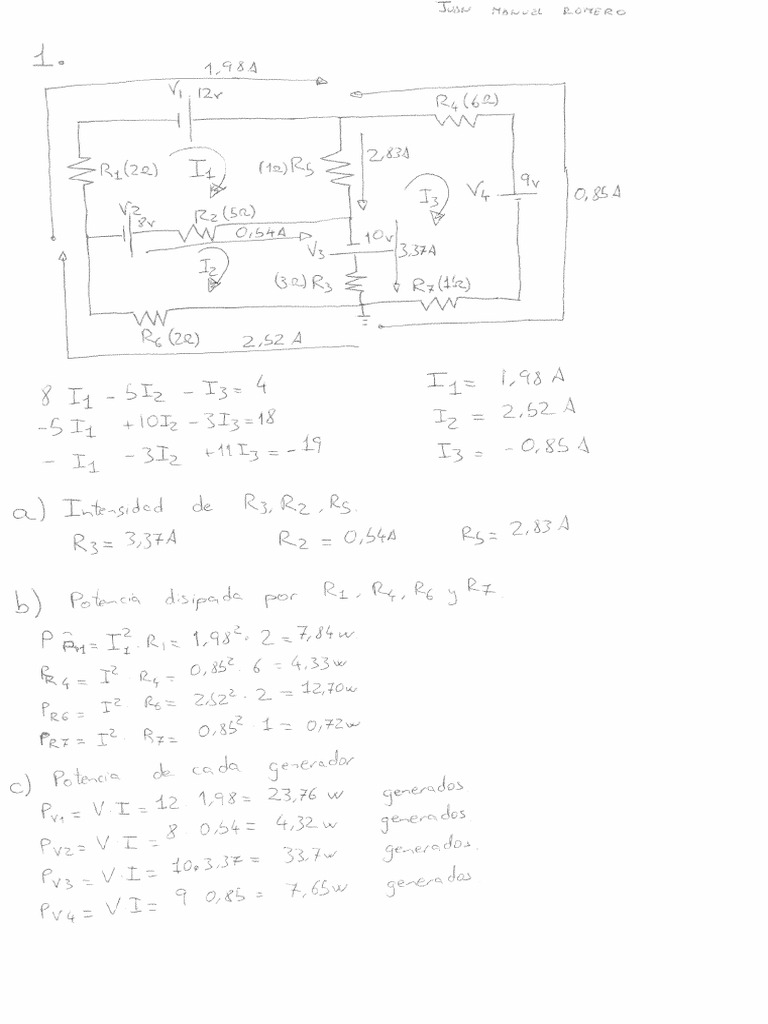 JUAN MANUEL ROMERO
1.
1,98A
V1 12v
R4(6Ω)
R1(2Ω)
I1
(1Ω)R5
2,83A
I3
V4
9v
0,85A
V2
8v
R2(5Ω)
0,54A
V3
10v
3,37A
I2
(3Ω)R3
R7(1Ω)
R6(2Ω)
2,52 A
8 I1 - 5I2 - I3 = 4
-5I1 +10I2 - 3I3 = 18
- I1 - 3I2 +11I3 = -19
I1 = 1,98 A
I2 = 2,52 A
I3 = -0,85 A
a) Intensidad de R3, R2, R5.
R3 = 3,37A R2 = 0,54A R5 = 2,83 A
b) Potencia disipada por R1, R4, R6 y R7.
P R1 = I1² · R1 = 1,98² · 2 = 7,84w
PR4 = I² · R4 = 0,85² · 6 = 4,33w
PR6 = I² · R6 = 2,52² · 2 = 12,70w
PR7 = I² · R7 = 0,85² · 1 = 0,72w
c) Potencia de cada generador
PV1 = V·I = 12 · 1,98 = 23,76 w generados
PV2 = V·I = 8 · 0,54 = 4,32 w generados
PV3 = V·I = 10·3,37 = 33,7w generados.
PV4 = V I = 9 0,85 = 7,65w generados